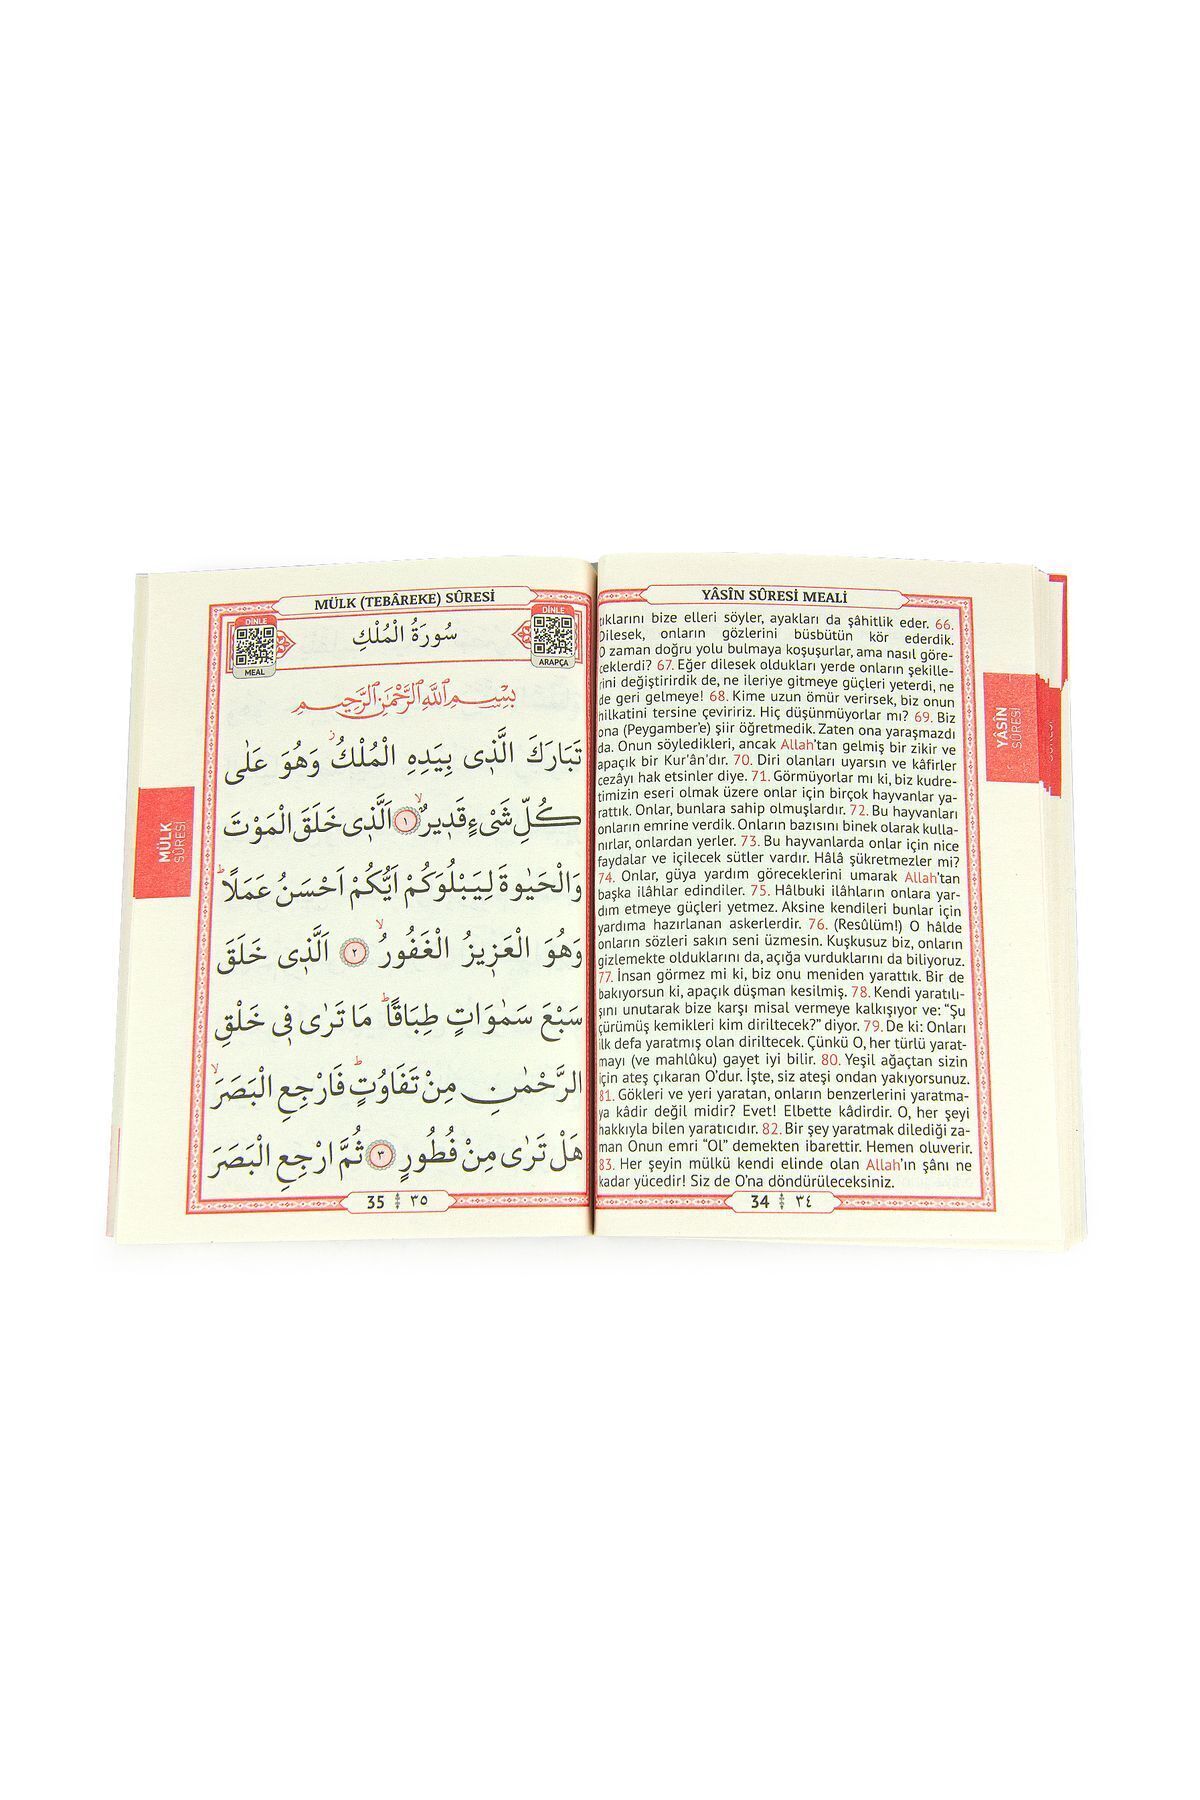 YÂSÎN SÛRESİ MEALİ
uklarını bize elleri söyler, ayakları da şâhitlik eder. 66.
Dilesek, onların gözlerini büsbütün kör ederdik.
O zaman doğru yolu bulmaya koşuşurlar, ama nasıl göre-
ceklerdi? 67. Eğer dilesek oldukları yerde onların şekille-
rini değiştirirdik de, ne ileriye gitmeye güçleri yeterdi, ne
de geri gelmeye! 68. Kime uzun ömür verirsek, biz onun
hilkatini tersine çeviririz. Hiç düşünmüyorlar mı? 69. Biz
ona (Peygamber'e) şiir öğretmedik. Zaten ona yaraşmazdı
da. Onun söyledikleri, ancak Allah'tan gelmiş bir zikir ve
apaçık bir Kur'ân'dır. 70. Diri olanları uyarsın ve kâfirler
cezâyı hak etsinler diye. 71. Görmüyorlar mı ki, biz kudre-
timizin eseri olmak üzere onlar için birçok hayvanlar ya-
rattık. Onlar, bunlara sahip olmuşlardır. 72. Bu hayvanları
onların emrine verdik. Onların bazısını binek olarak kulla-
nırlar, onlardan yerler. 73. Bu hayvanlarda onlar için nice
faydalar ve içilecek sütler vardır. Hâlâ şükretmezler mi?
74. Onlar, güya yardım göreceklerini umarak Allah'tan
başka ilâhlar edindiler. 75. Hâlbuki ilâhların onlara yar-
dım etmeye güçleri yetmez. Aksine kendileri bunlar için
yardıma hazırlanan askerlerdir. 76. (Resûlüm!) O hâlde
onların sözleri sakın seni üzmesin. Kuşkusuz biz, onların
gizlemekte olduklarını da, açığa vurduklarını da biliyoruz.
77. İnsan görmez mi ki, biz onu meniden yarattık. Bir de
bakıyorsun ki, apaçık düşman kesilmiş. 78. Kendi yaratılı-
şını unutarak bize karşı misal vermeye kalkışıyor ve: "Şu
çürümüş kemikleri kim diriltecek?" diyor. 79. De ki: Onları
ilk defa yaratmış olan diriltecek. Çünkü O, her türlü yarat-
mayı (ve mahlûku) gayet iyi bilir. 80. Yeşil ağaçtan sizin
için ateş çıkaran O'dur. İşte, siz ateşi ondan yakıyorsunuz.
81. Gökleri ve yeri yaratan, onların benzerlerini yaratma-
ya kâdir değil midir? Evet! Elbette kâdirdir. O, her şeyi
hakkıyla bilen yaratıcıdır. 82. Bir şey yaratmak dilediği za-
man Onun emri "Ol" demekten ibarettir. Hemen oluverir.
83. Her şeyin mülkü kendi elinde olan Allah'ın şânı ne
kadar yücedir! Siz de O'na döndürüleceksiniz.
34 ٣٤
YÂSÎN
SÛRESİ
MÜLK (TEBÂREKE) SÛRESİ
DİNLE
MEAL
سُورَةُ الْمُلْكِ
DİNLE
ARAPÇA
بِسْمِ اللّٰهِ الرَّحْمٰنِ الرَّحِيمِ
تَبَارَكَ الَّذ۪ي بِيَدِهِ الْمُلْكُۘ وَهُوَ عَلٰى
كُلِّ شَيْءٍ قَد۪يرٌۙ ١ اَلَّذ۪ي خَلَقَ الْمَوْتَ
وَالْحَيٰوةَ لِيَبْلُوَكُمْ اَيُّكُمْ اَحْسَنُ عَمَلًاۜ
وَهُوَ الْعَز۪يزُ الْغَفُورُۙ ٢ اَلَّذ۪ي خَلَقَ
سَبْعَ سَمٰوَاتٍ طِبَاقًاۜ مَا تَرٰى ف۪ي خَلْقِ
الرَّحْمٰنِ مِنْ تَفَاوُتٍۜ فَارْجِعِ الْبَصَرَۙ
هَلْ تَرٰى مِنْ فُطُورٍ ٣ ثُمَّ ارْجِعِ الْبَصَرَ
35 ٣٥
MÜLK
SÛRESİ